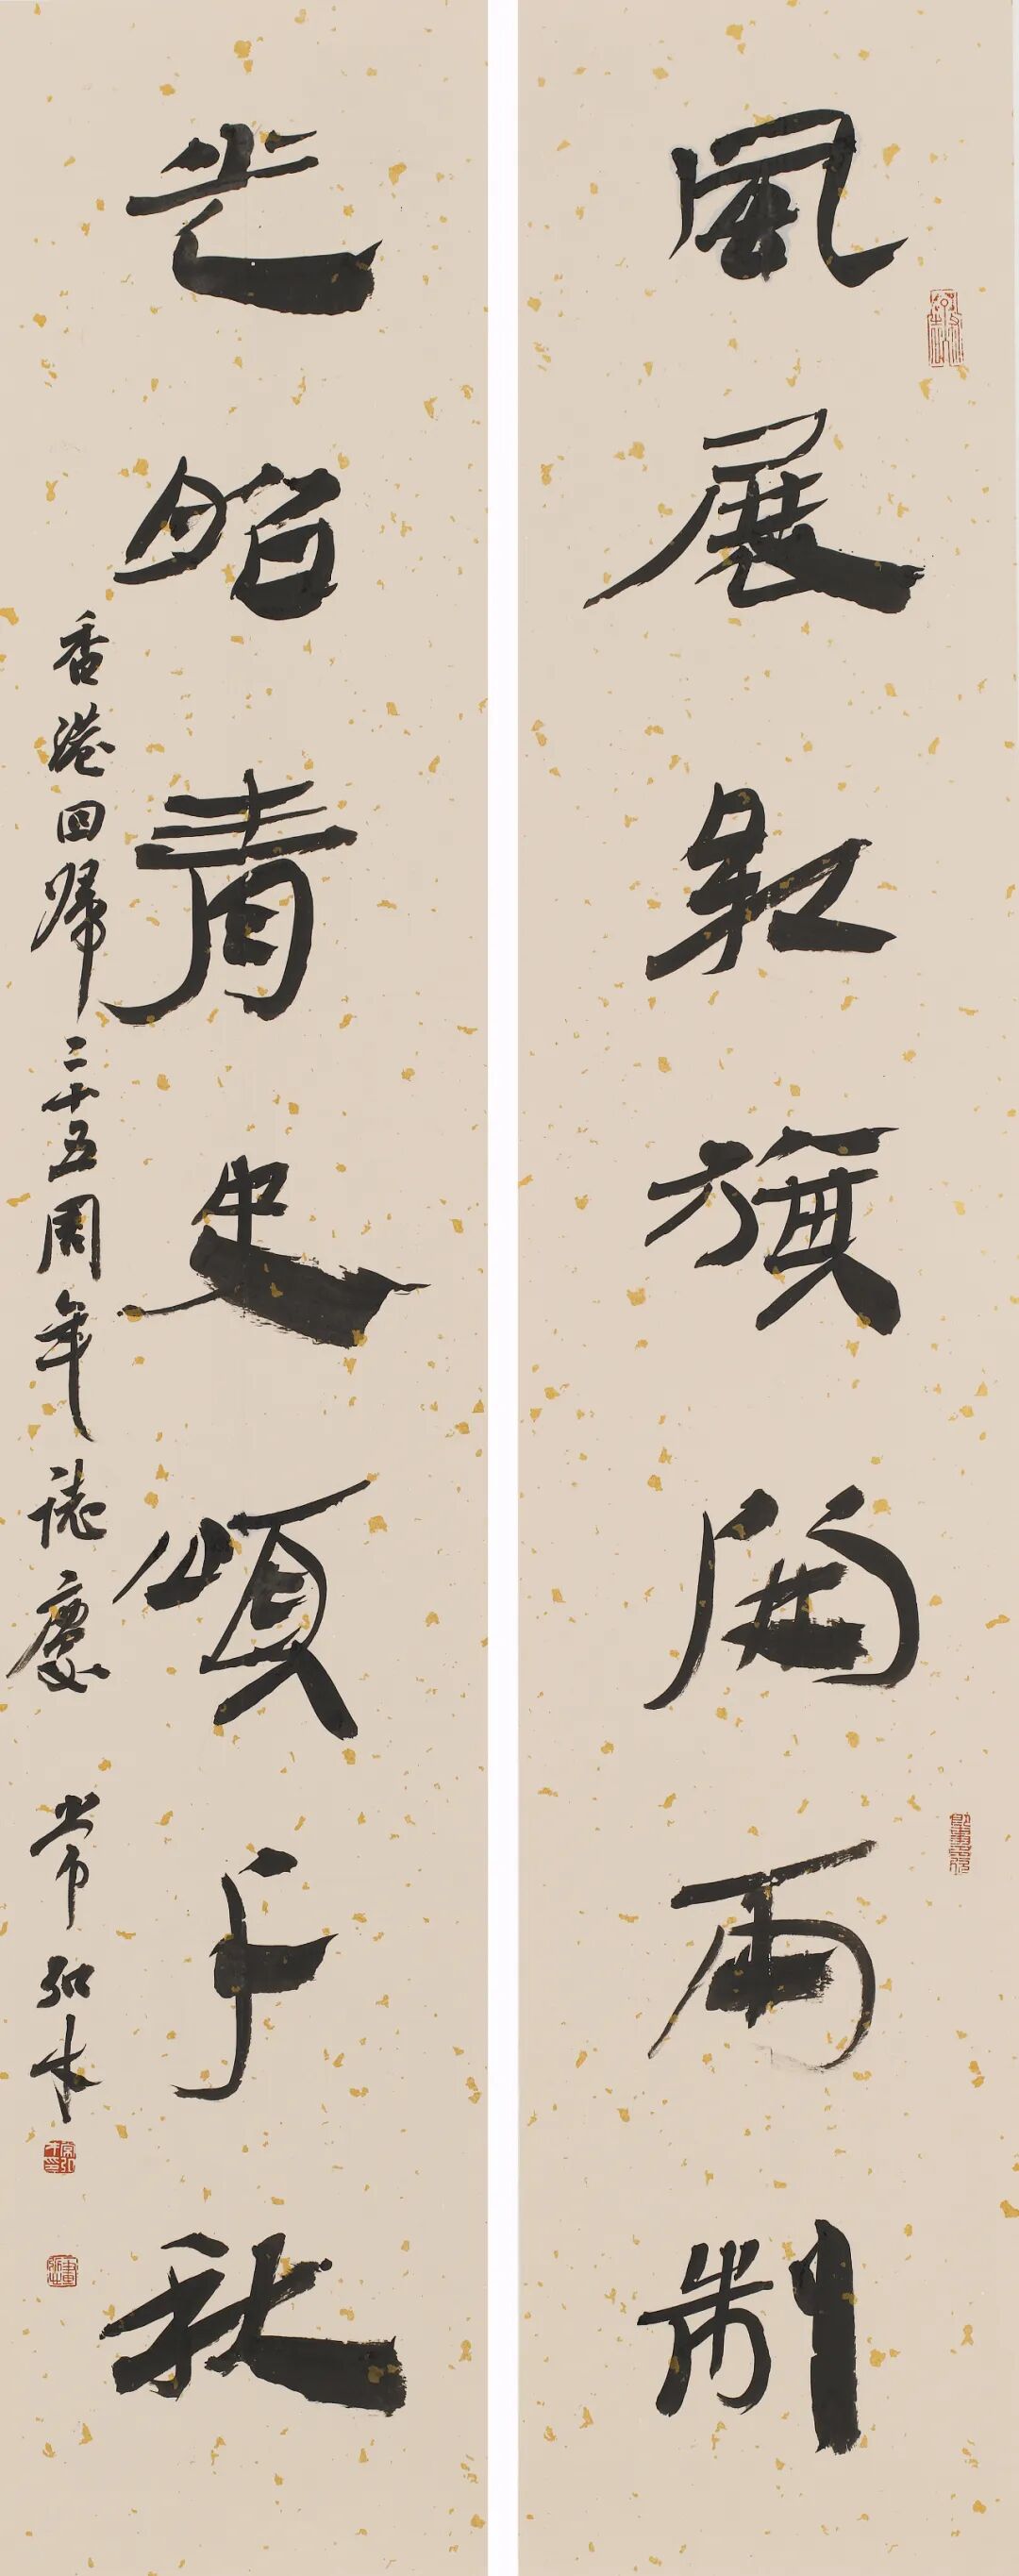 風展紅旗開兩制
光昭青史頌千秋
香港回歸二十五周年誌慶 常弘水